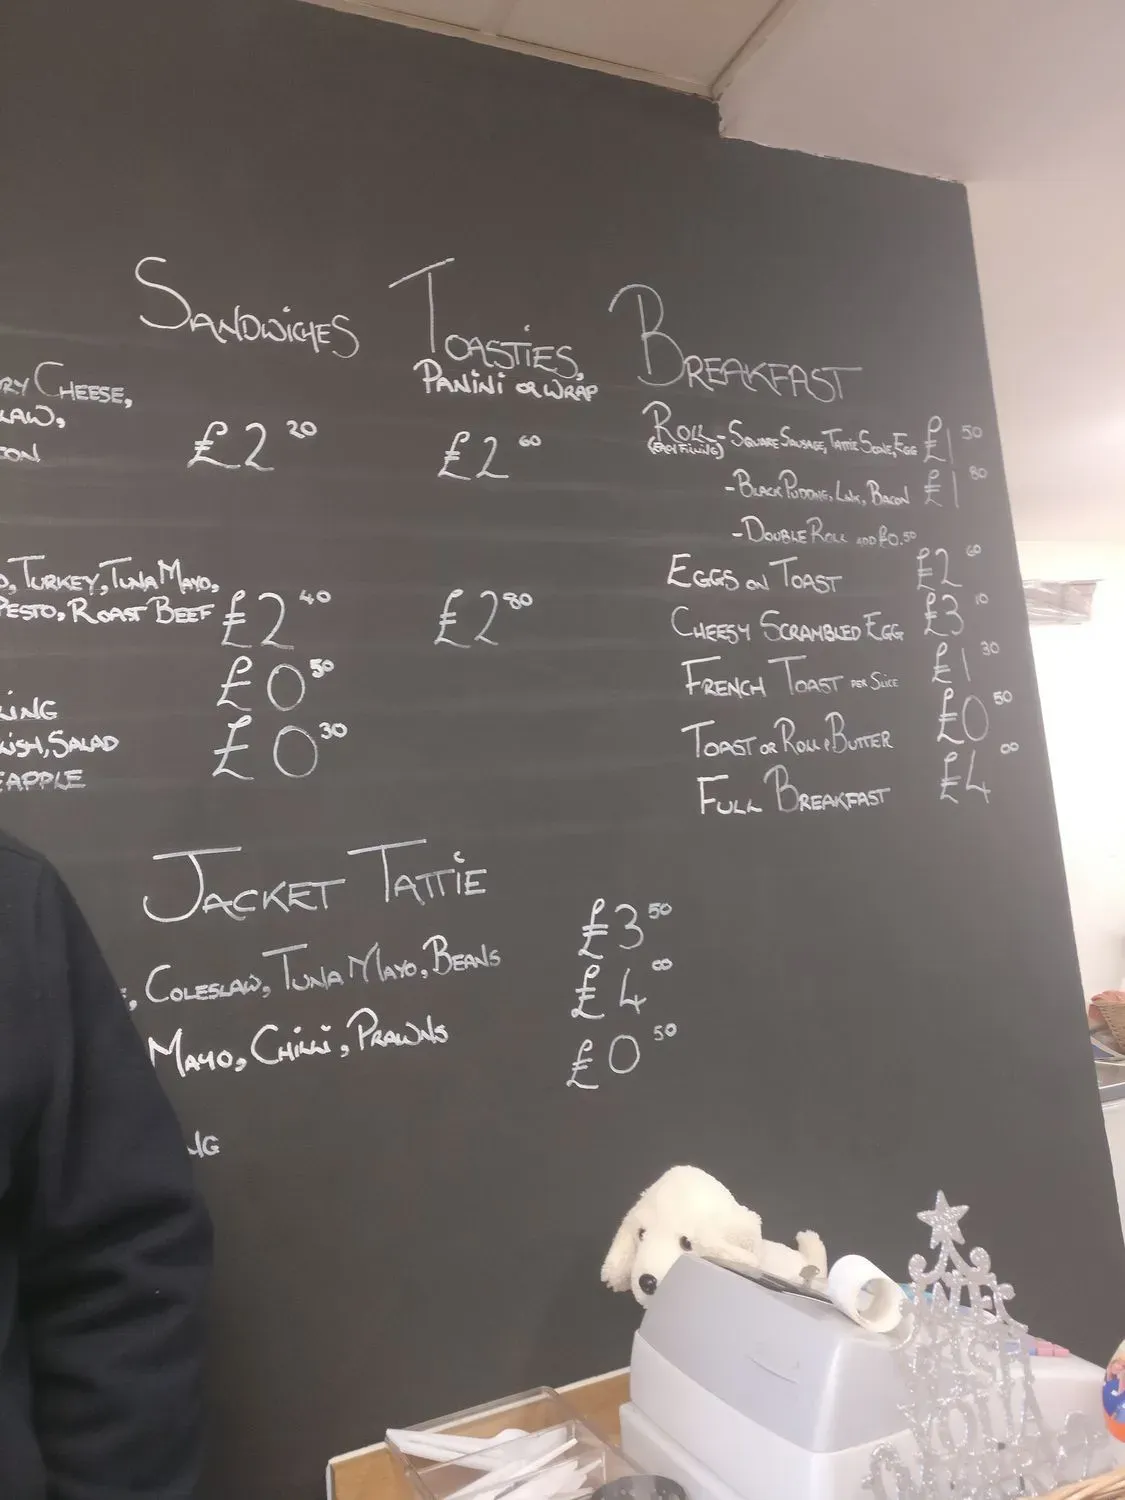 SANDWICHES
TOASTIES,
PANINI OR WRAP
CHEESE,
£2 20
£2 60
TURKEY, TUNA MAYO,
PESTO, ROAST BEEF
£2 40
£2 80
£0 50
SALAD
£0 30
BREAKFAST
ROLL - SQUARE SAUSAGE, TATTIE SCONE, EGG £1 50
(EACH FILLING)
- BLACK PUDDING, LINK, BACON £1 80
- DOUBLE ROLL ADD £0.50
EGGS ON TOAST £2 60
CHEESY SCRAMBLED EGG £3 10
FRENCH TOAST PER SLICE £1 30
TOAST OR ROLL & BUTTER £0 50
FULL BREAKFAST £4 00
JACKET TATTIE
COLESLAW, TUNA MAYO, BEANS £3 50
MAYO, CHILLI, PRAWNS £4 00
£0 50
WE
WISH
YOU A